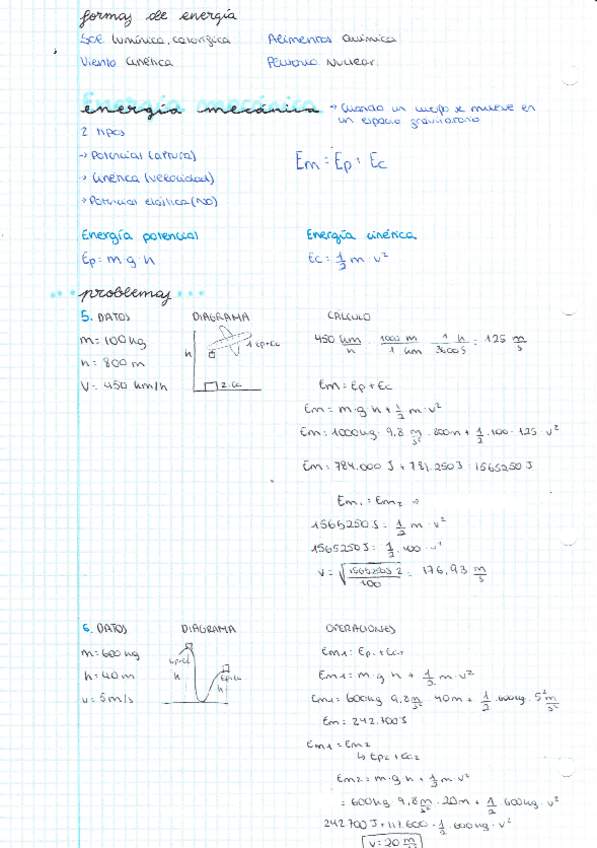 formas de energía
Sol lumínica, calorífica Alimentos química
Viento cinética Plutonio Nuclear.
energía mecánica → Cuando un cuerpo se mueve en
un espacio gravitatorio
2 tipos
→ Potencial (altura) Em = Ep + Ec
→ Cinética (velocidad)
→ Potencial elástica (NO)
Energía potencial Energía cinética
Ep = m · g · h Ec = 1/2 m · v²
problemas
5. DATOS DIAGRAMA CÁLCULO
m = 100 kg h 1 Ep+Ec 450 km/h · 1000 m/1 km · 1 h/3600 s = 125 m/s
h = 800 m
V = 450 km/h 2. Ec Em = Ep + Ec
Em = m · g · h + 1/2 m · v²
Em = 1000 kg · 9.8 m/s² · 800 m + 1/2 · 100 · 125 · v²
Em = 784.000 J + 781.250 J = 1565250 J
Em₁ = Em₂ ⇒
1565250 J = 1/2 m · v²
1565250 J = 1/2 · 100 · v²
V = √(1565250 · 2/100) = 176,93 m/s
6. DATOS DIAGRAMA OPERACIONES
m = 600 kg Ep+Ec Em1 = Ep1 + Ec1
h = 40 m h Ep+Ec h Em1 = m · g · h + 1/2 m · v²
v = 5 m/s Em1 = 600 kg 9,8 m/s² 40 m + 1/2 · 600 kg · 5² m/s²
Em = 242.700 J
Em1 = Em2
↳ Ep2 + Ec2
Em2 = m · g · h + 1/2 m · v²
= 600 kg 9,8 m/s² · 20 m + 1/2 600 kg · v²
242 700 J = 117.600 + 1/2 · 600 kg · v²
v = 20 m/s